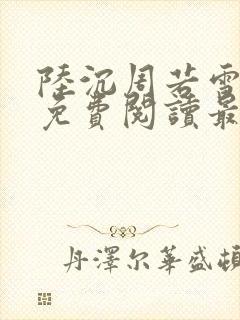 陸沉周若雪
免費閱讀最
丹澤尔華盛頓